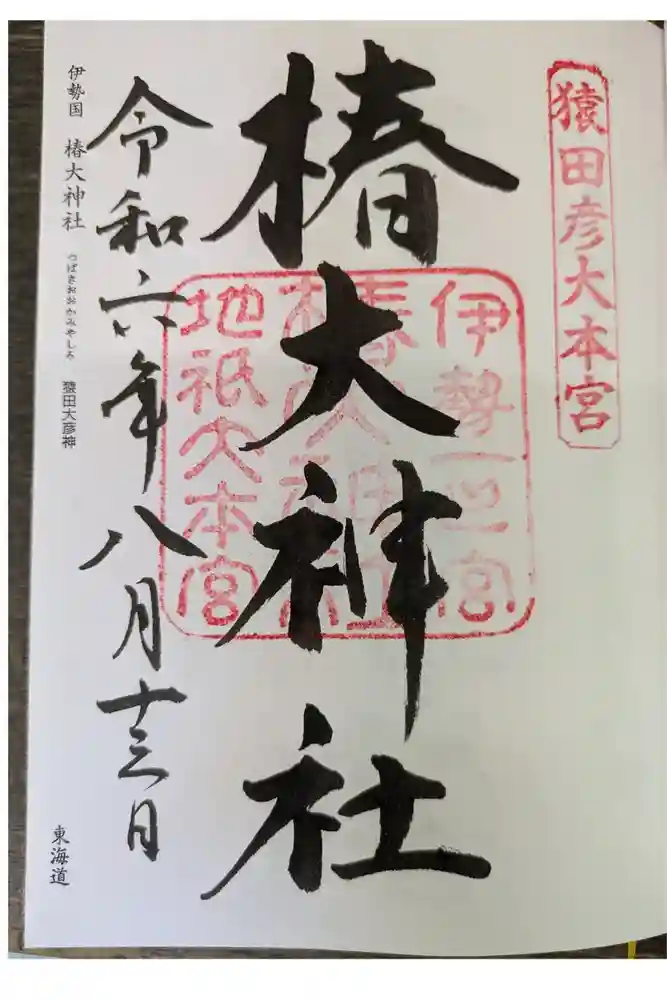 猿田彦大本宮
椿大神社
伊勢一之宮
椿大神社
地祇大本宮
令和六年八月十三日
伊勢国 椿大神社 つばきおおかみやしろ 猿田大彦神
東海道